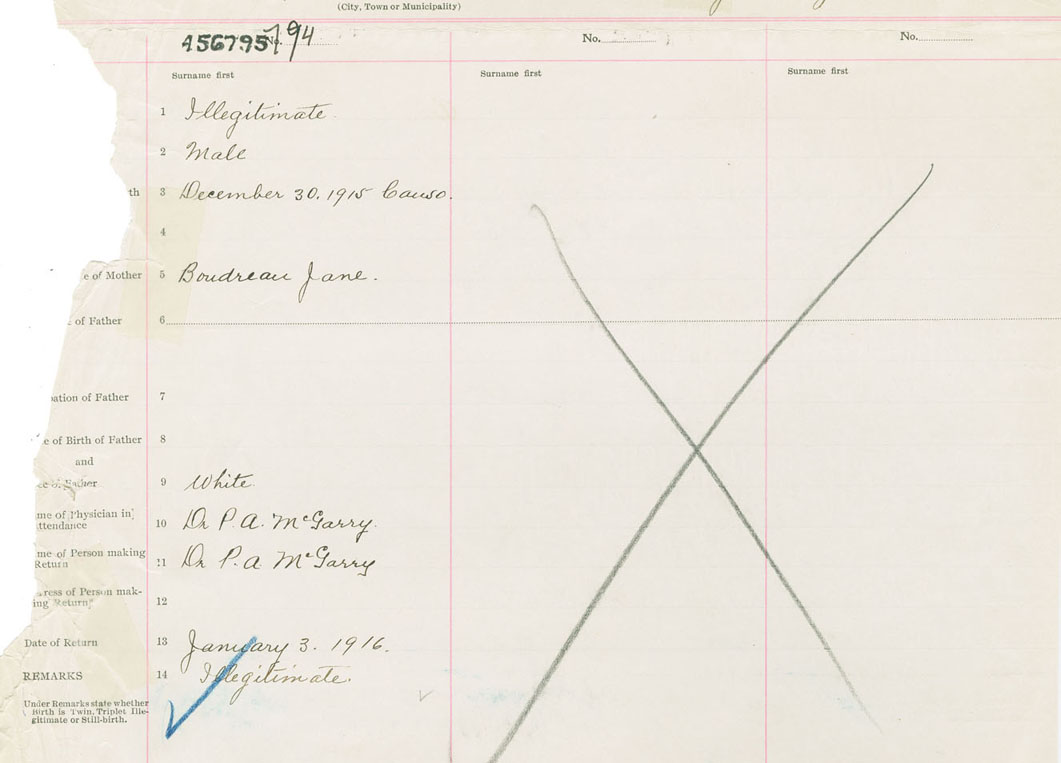 (City, Town or Municipality)
456795 794 No. No.
Surname first Surname first Surname first
1 Illegitimate
2 Male
th 3 December 30. 1915 Canso.
4
e of Mother 5 Boudreau Jane.
of Father 6
ation of Father 7
e of Birth of Father 8
and
Father 9 White
me of Physician in
ttendance 10 Dr P. A. McGarry.
me of Person making
Return 11 Dr P. A. McGarry
ress of Person mak-
ing Return 12
Date of Return 13 January 3. 1916.
REMARKS 14 Illegitimate.
Under Remarks state whether
Birth is Twin, Triplet Ille-
gitimate or Still-birth.